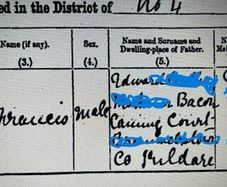 ed in the District of No 4
Name (if any).
Sex.
Name and Surname and
Dwelling-place of Father.
(3.)
(4.)
(5.)
Francis
Male
Edward
Bacon
Court
Co Kildare